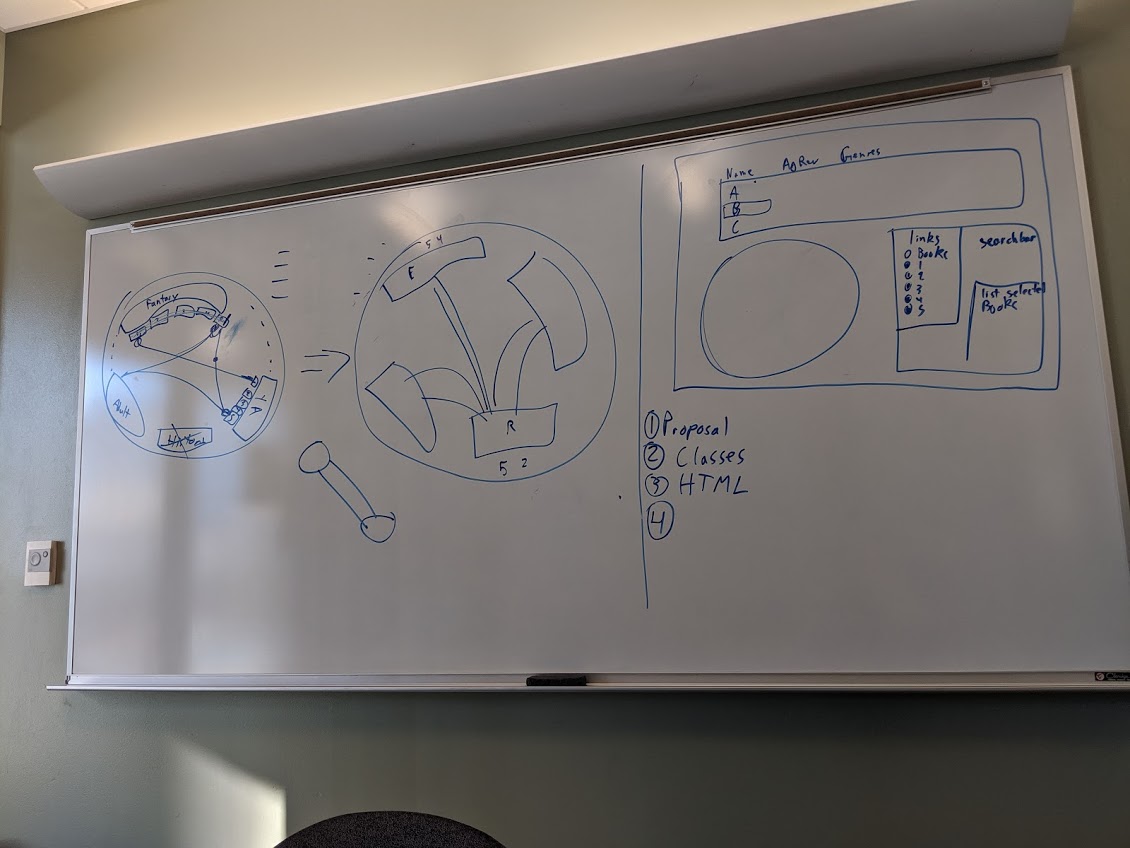 Fantasy
Adult
YA
5 4
F
R
5 2
Name
Genres
A
B
C
links
Books
1
2
3
4
5
searchbar
list selected
Books
① Proposal
② Classes
③ HTML
④